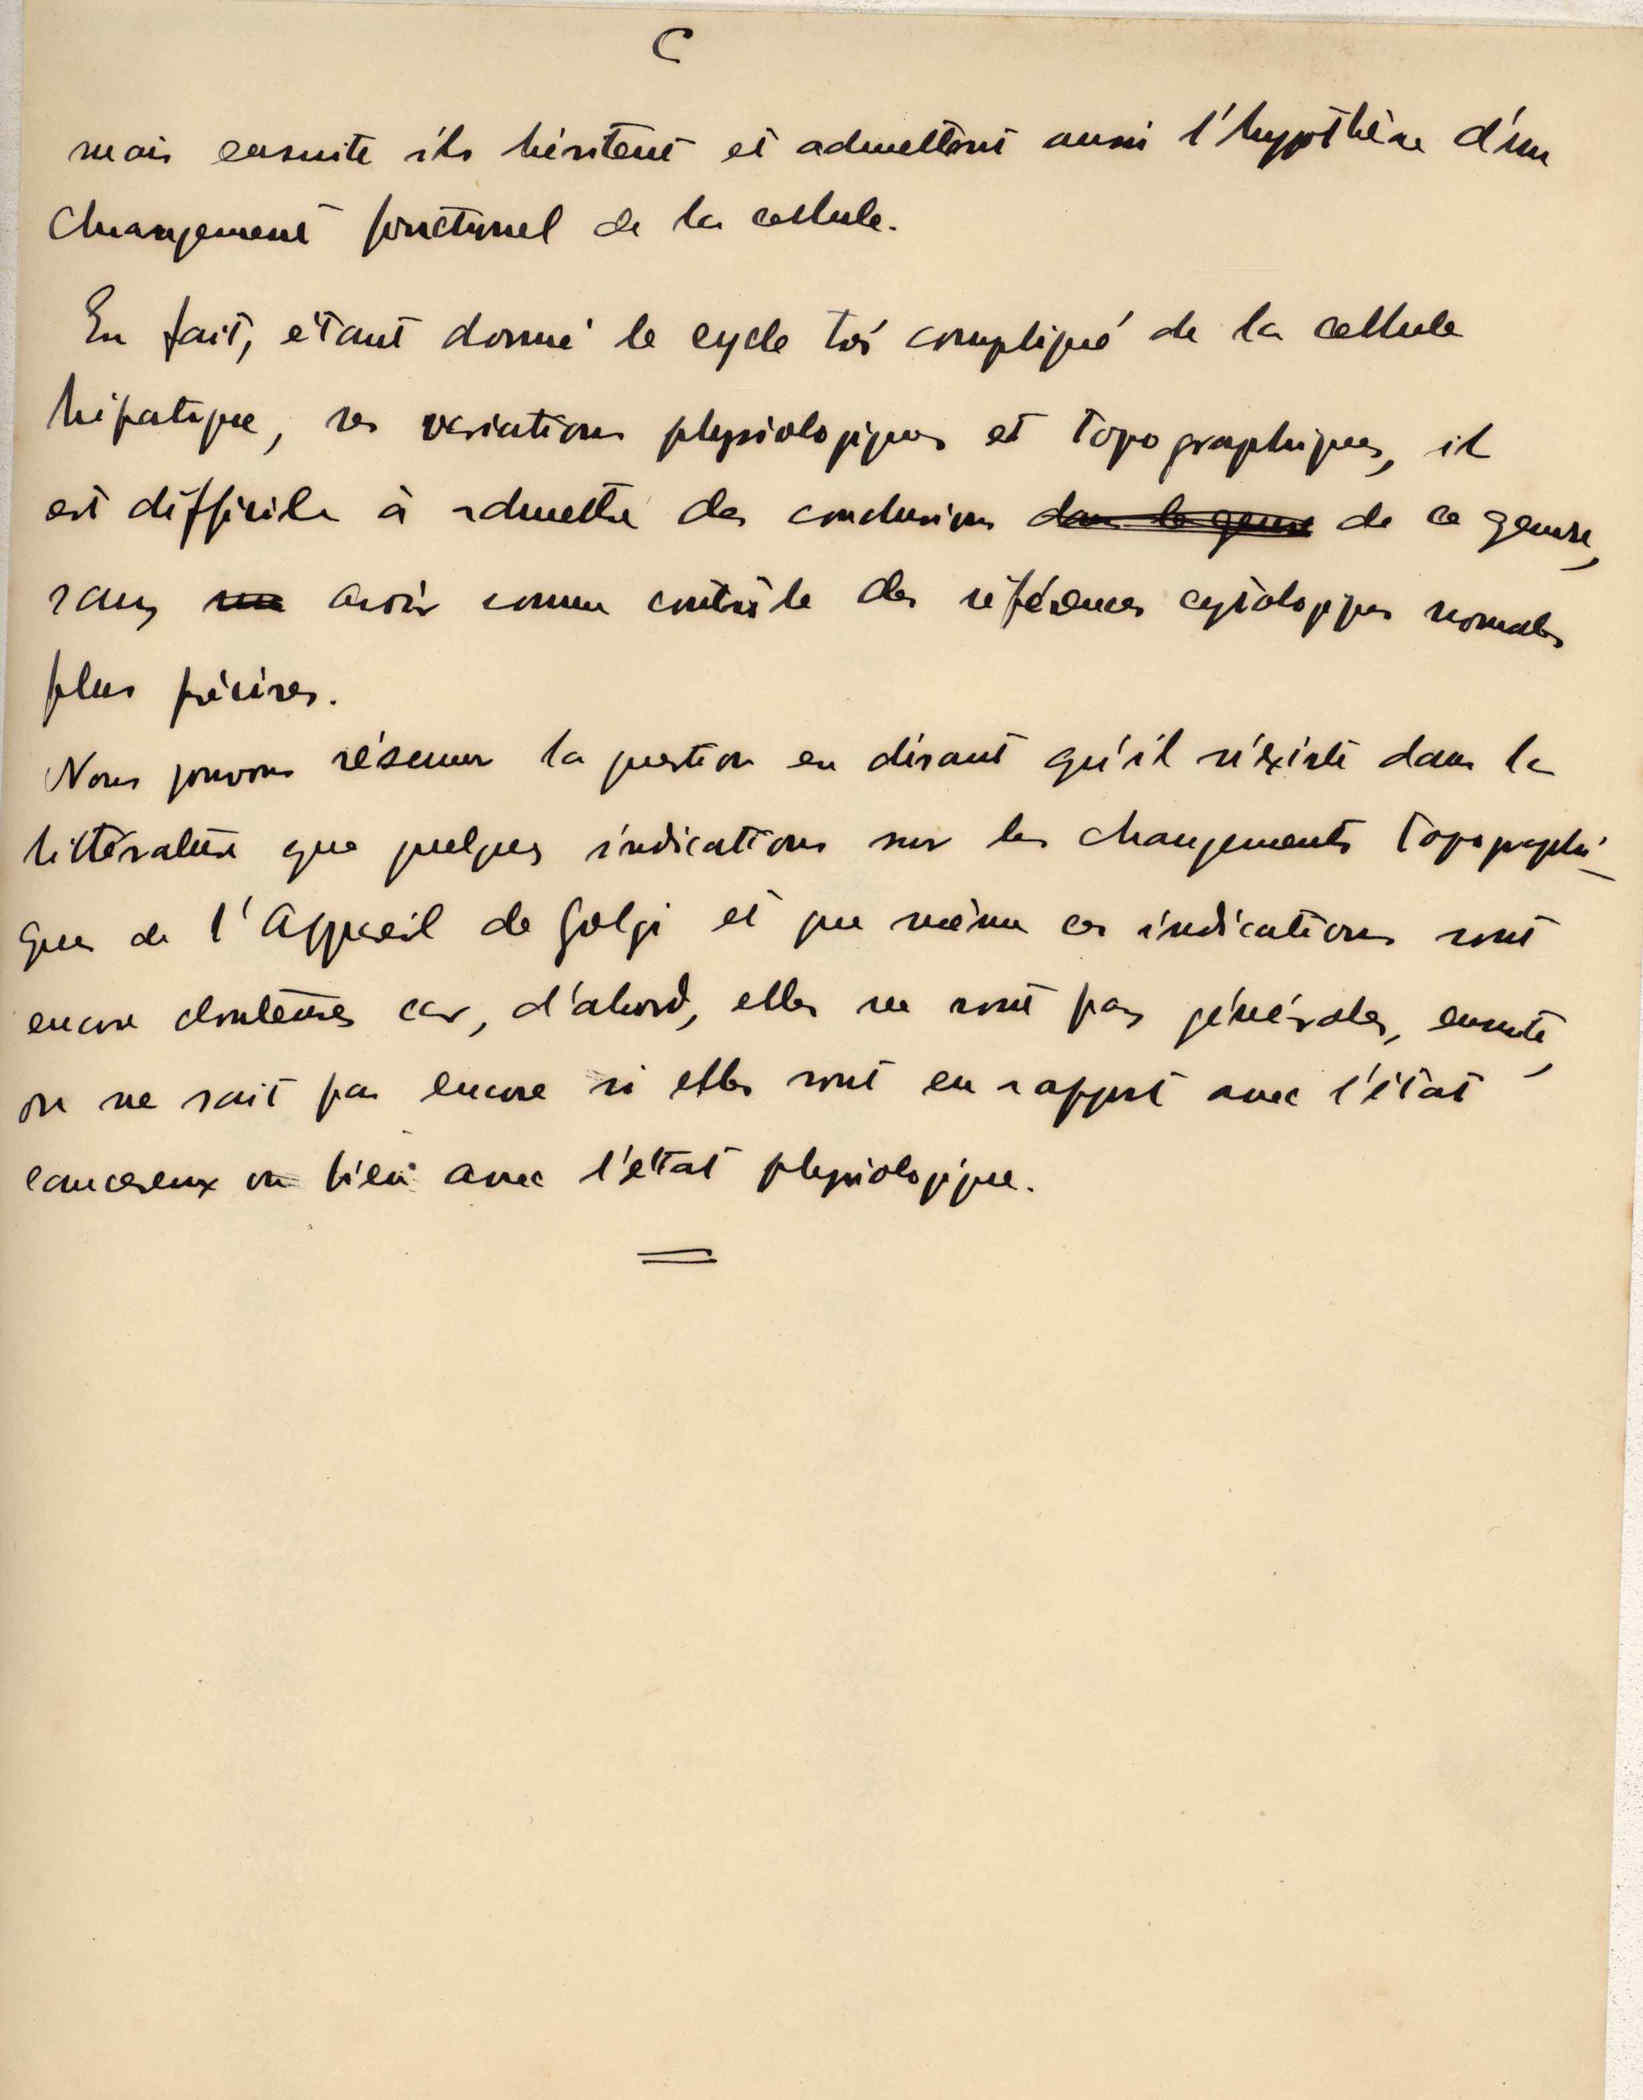 C
mais ensuite ils hésitent et admettent aussi l'hypothèse d'un
changement fonctionnel de la cellule.
En fait, étant donné le cycle très compliqué de la cellule
hépatique, ses variations physiologiques et topographiques, il
est difficile à admettre des conclusions dans le genre de ce genre,
sans avoir comme contrôle des références cytologiques normales
plus précises.
Nous pouvons résumer la question en disant qu'il n'existe dans la
littérature que quelques indications sur les changements topographi-
ques de l'Appareil de Golgi et que même ces indications sont
encore douteuses car, d'abord, elles ne sont pas générales, ensuite,
on ne sait pas encore si elles sont en rapport avec l'état
cancereux ou bien avec l'état physiologique.